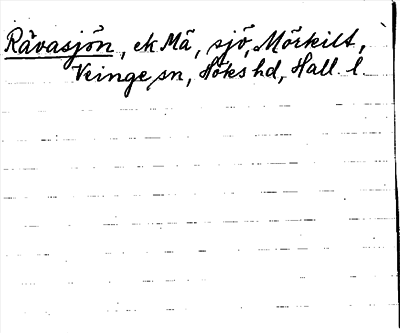 Rävasjön, ek Mä, sjö, Mörkilt,
Veinge sn, Höks hd, Hall. l.